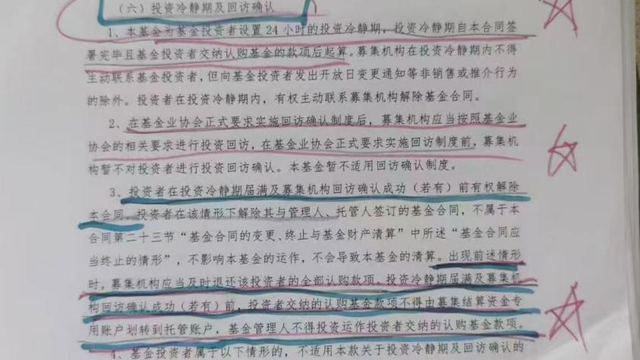 (六)投资冷静期及回访确认
1、本基金为基金投资者设置24小时的投资冷静期,投资冷静期自本合同签
署完毕且基金投资者交纳认购基金的款项后起算。募集机构在投资冷静期内不得
主动联系基金投资者,但向基金投资者发出开放日变更通知等非销售或推介行为
的除外。投资者在投资冷静期内,有权主动联系募集机构解除基金合同。
2、在基金业协会正式要求实施回访确认制度后,募集机构应当按照基金业
协会的相关要求进行投资回访,在基金业协会正式要求实施回访制度前,募集机
构暂不对投资者进行投资回访确认。本基金暂不适用回访确认制度。
3、投资者在投资冷静期届满及募集机构回访确认成功(若有)前有权解除
本合同。投资者在该情形下解除其与管理人、托管人签订的基金合同,不属于本
合同第二十三节“基金合同的变更、终止与基金财产清算”中所述“基金合同应
当终止的情形”,不影响本基金的运作,不会导致本基金的清算。出现前述情形
时,募集机构应当及时退还该投资者的全部认购款项。投资冷静期届满及募集机
构回访确认成功(若有)前,投资者交纳的认购基金款项不得由募集结算资金专
用账户划转到托管账户,基金管理人不得投资运作投资者交纳的认购基金款项。
4、基金投资者属于以下情形的,不适用本款关于投资冷静期及回访确认的